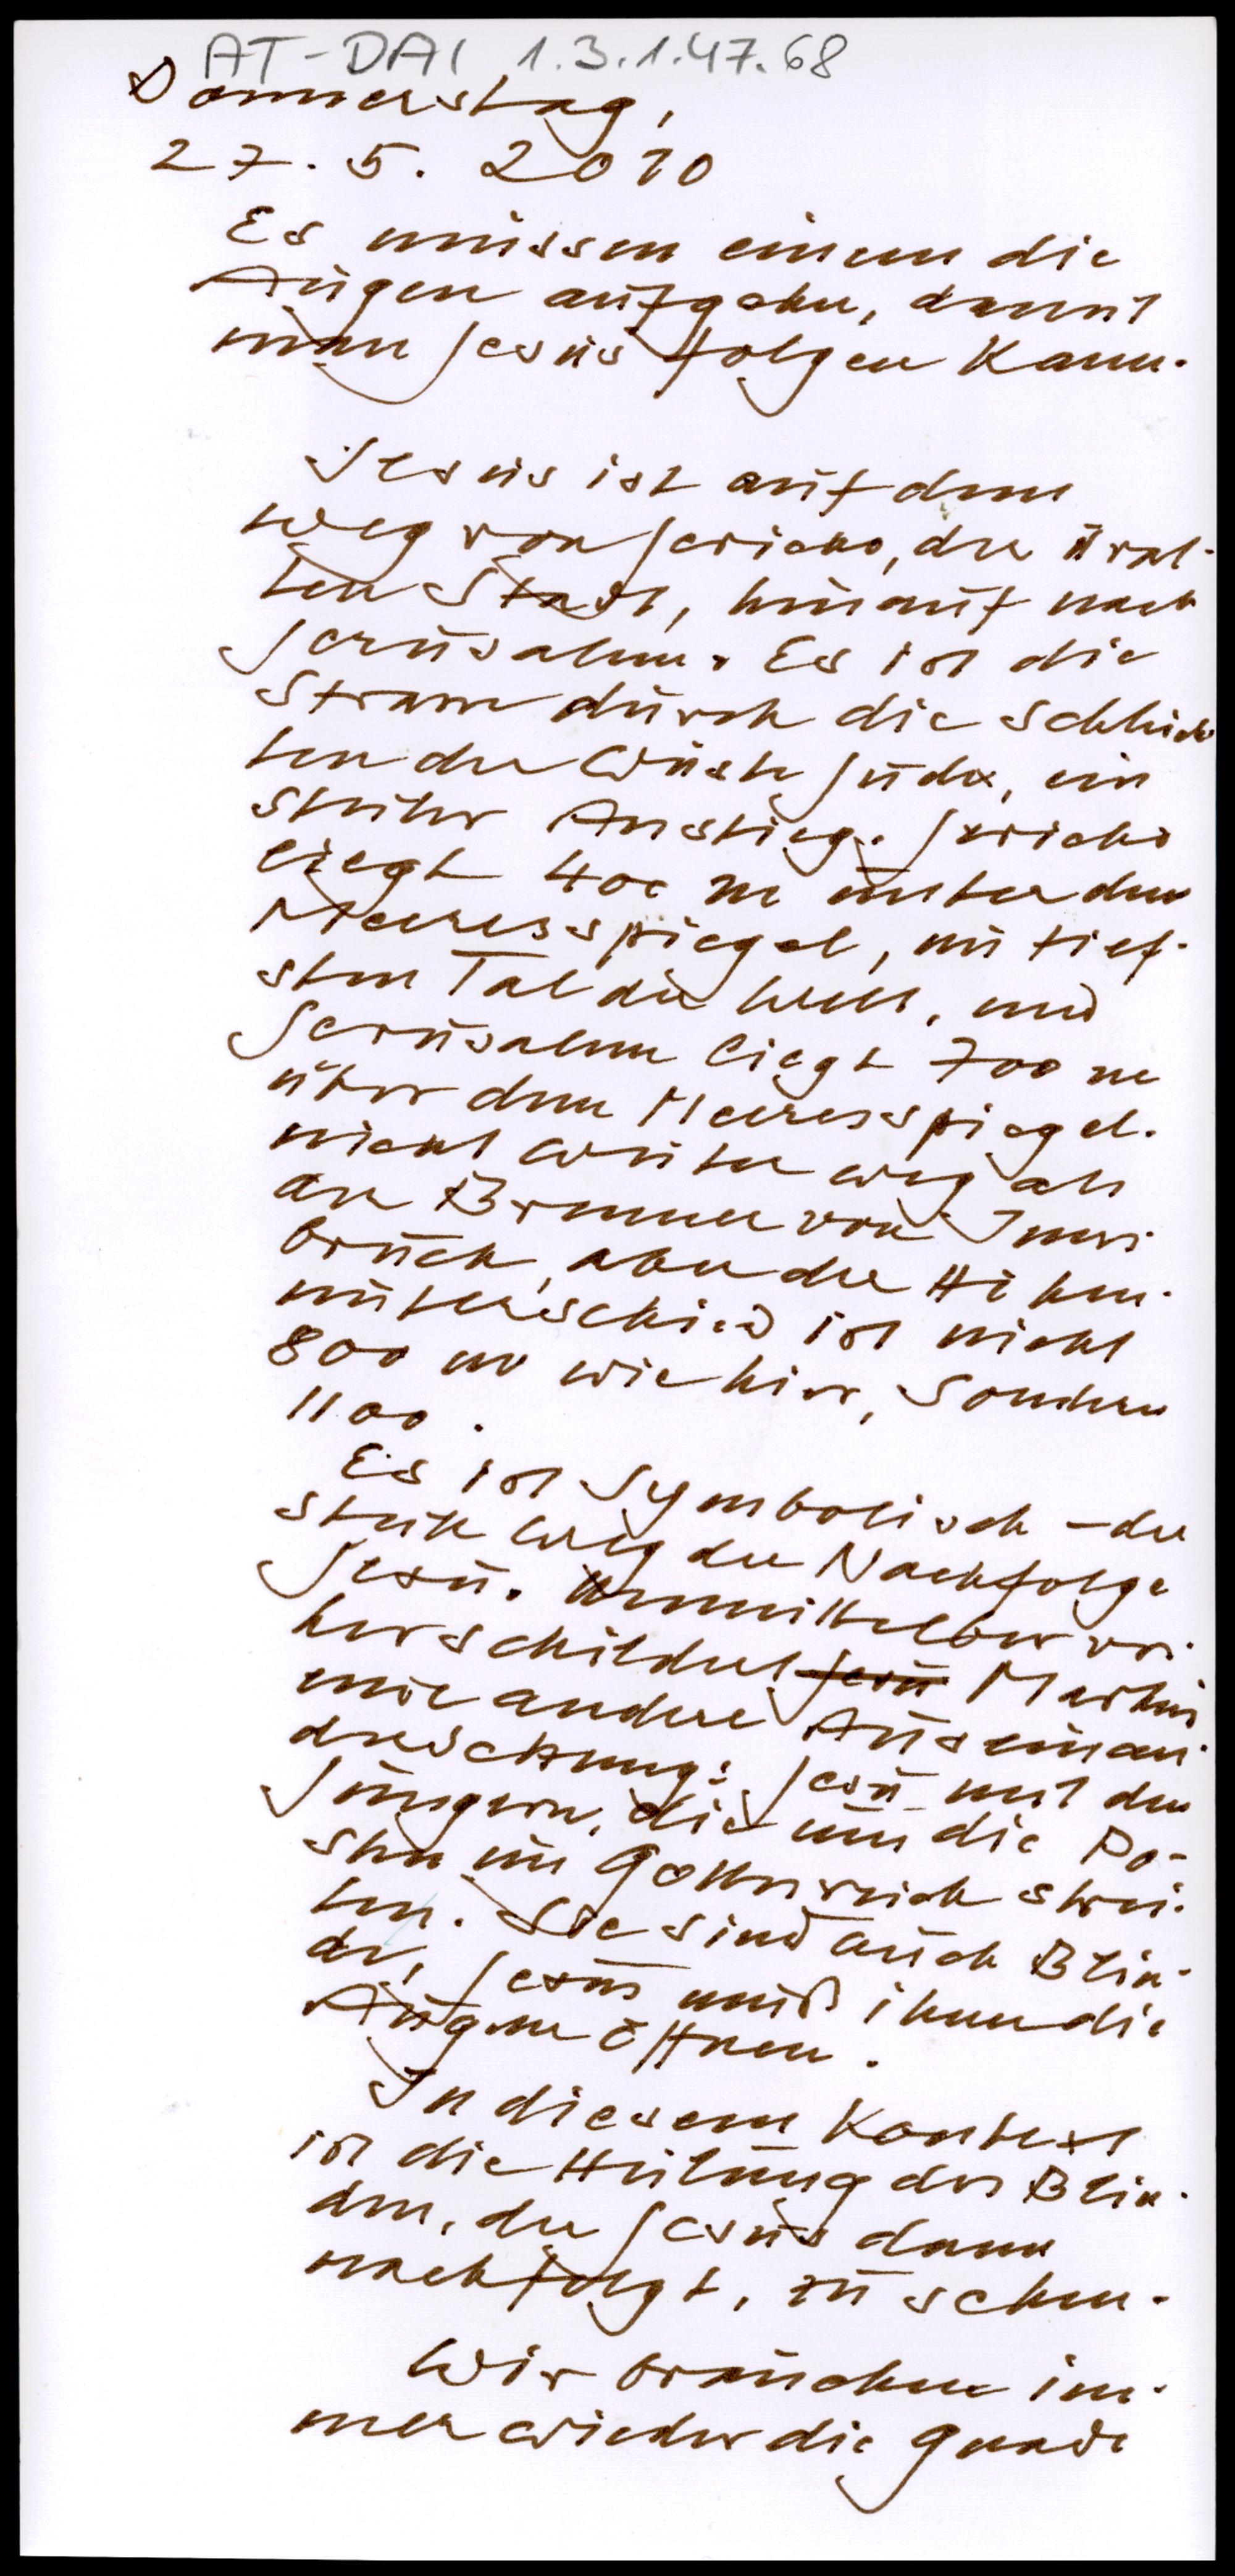 AT-DAI 1.3.1.47.68
Donnerstag,
27. 5. 2010
Es müssen einem die
Augen aufgehen, damit
man Jesus folgen kann.
Jesus ist auf dem
Weg von Jericho, der ural-
ten Stadt, hinauf nach
Jerusalem. Es ist die
Strasse durch die Schluch-
ten der Wüste Juda, ein
steiler Anstieg. Jericho
liegt 400 m unter dem
Meeresspiegel, im tief-
sten Tal der Welt, und
Jerusalem liegt 700 m
über dem Meeresspiegel.
nicht weiter weg als
der Brenner von Inns-
bruck, aber der Höhen-
unterschied ist nicht
800 m wie hier, sondern
1100.
Es ist symbolisch - der
steile Weg der Nachfolge
Jesu. Unmittelbar vor-
her schildert Jesu Markus
eine andere Auseinan-
dersetzung: Jesu mit den
Jüngern, die um die Po-
sten im Gottesreich strei-
ten. Sie sind auch Blin-
de, Jesus muß ihnen die
Augen öffnen.
In diesem Kontext
ist die Heilung des Blin-
den, der Jesus dann
nachfolgt, zu sehen.
Wir brauchen im-
mer wieder die Gnade